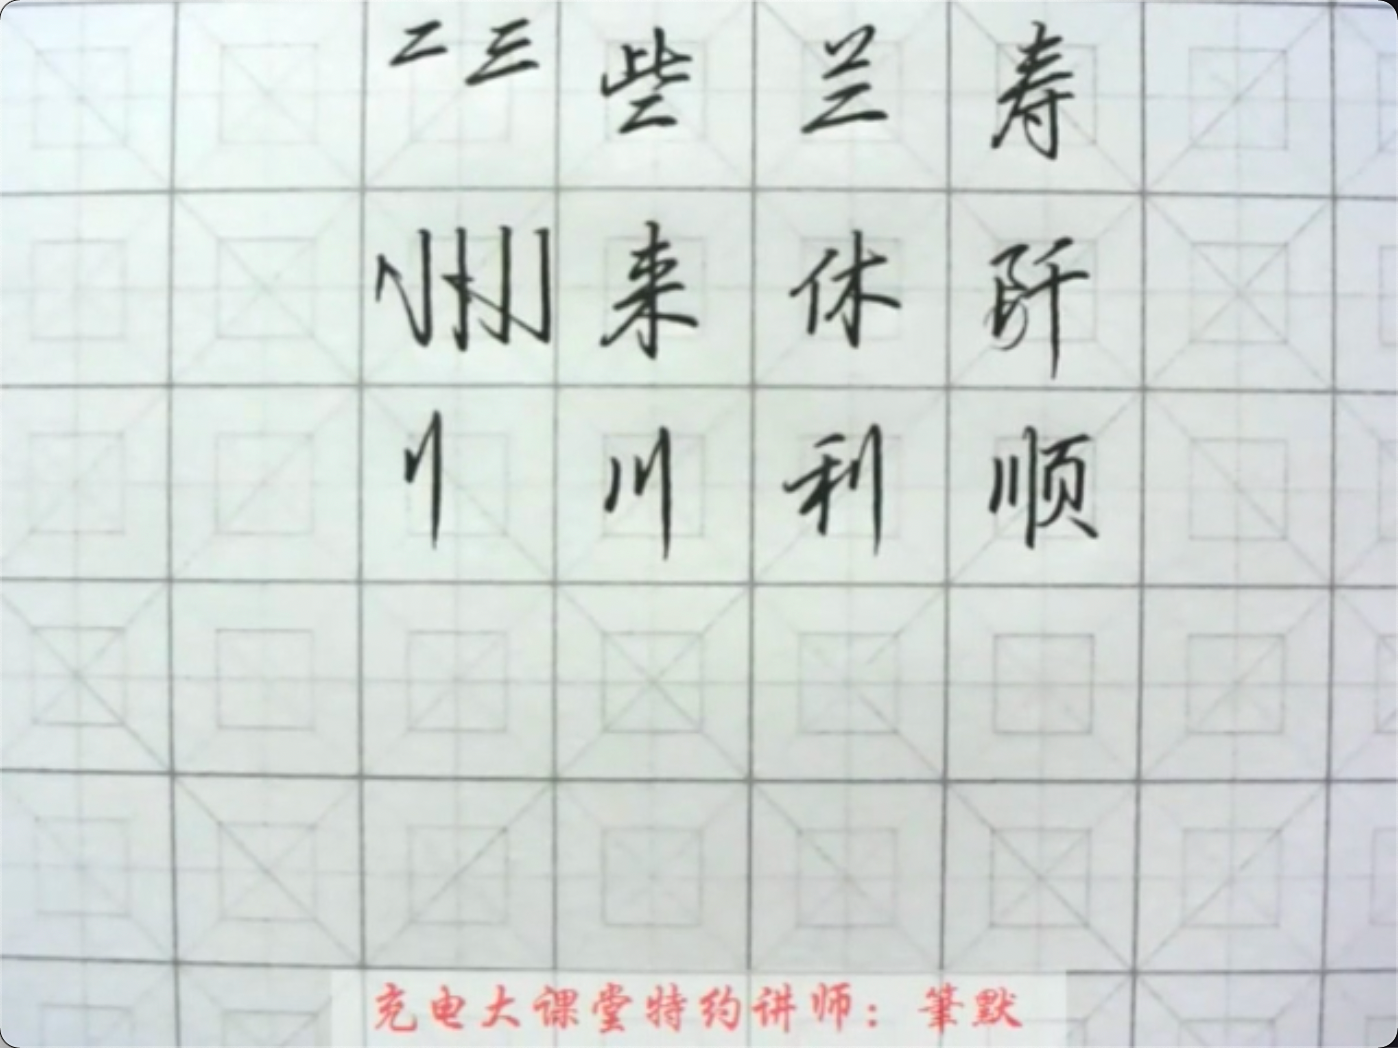 二 三 些 兰 寿
来 休 阡
刂 川 利 顺
充电大课堂特约讲师：筆默